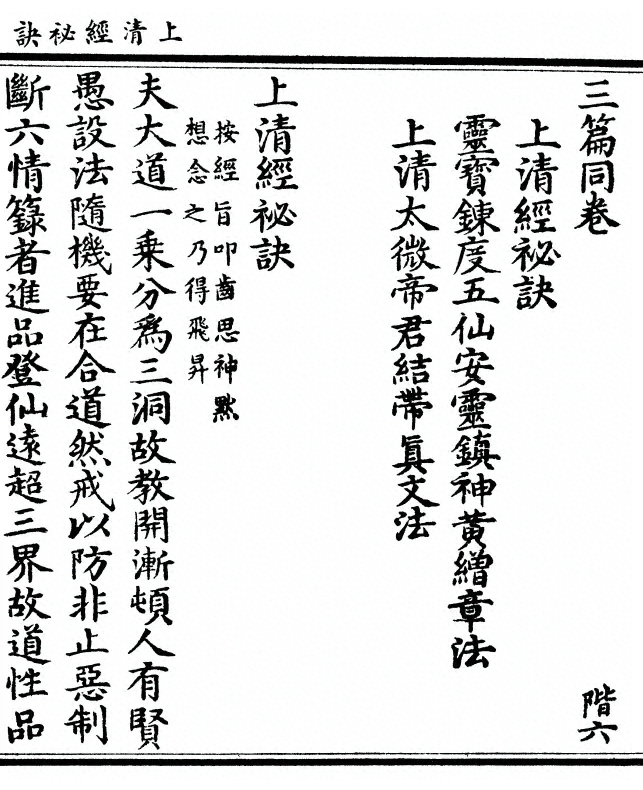 上清經祕訣
三篇同卷
階六
上清經祕訣
靈寶鍊度五仙安靈鎮神黃繒章法
上清太微帝君結帶真文法
上清經祕訣
按經旨叩齒思神默
想念之乃得飛昇
夫大道一乗分爲三洞故教開漸頓人有賢
愚設法隨機要在合道然戒以防非止惡制
斷六情籙者進品登仙遠超三界故道性品